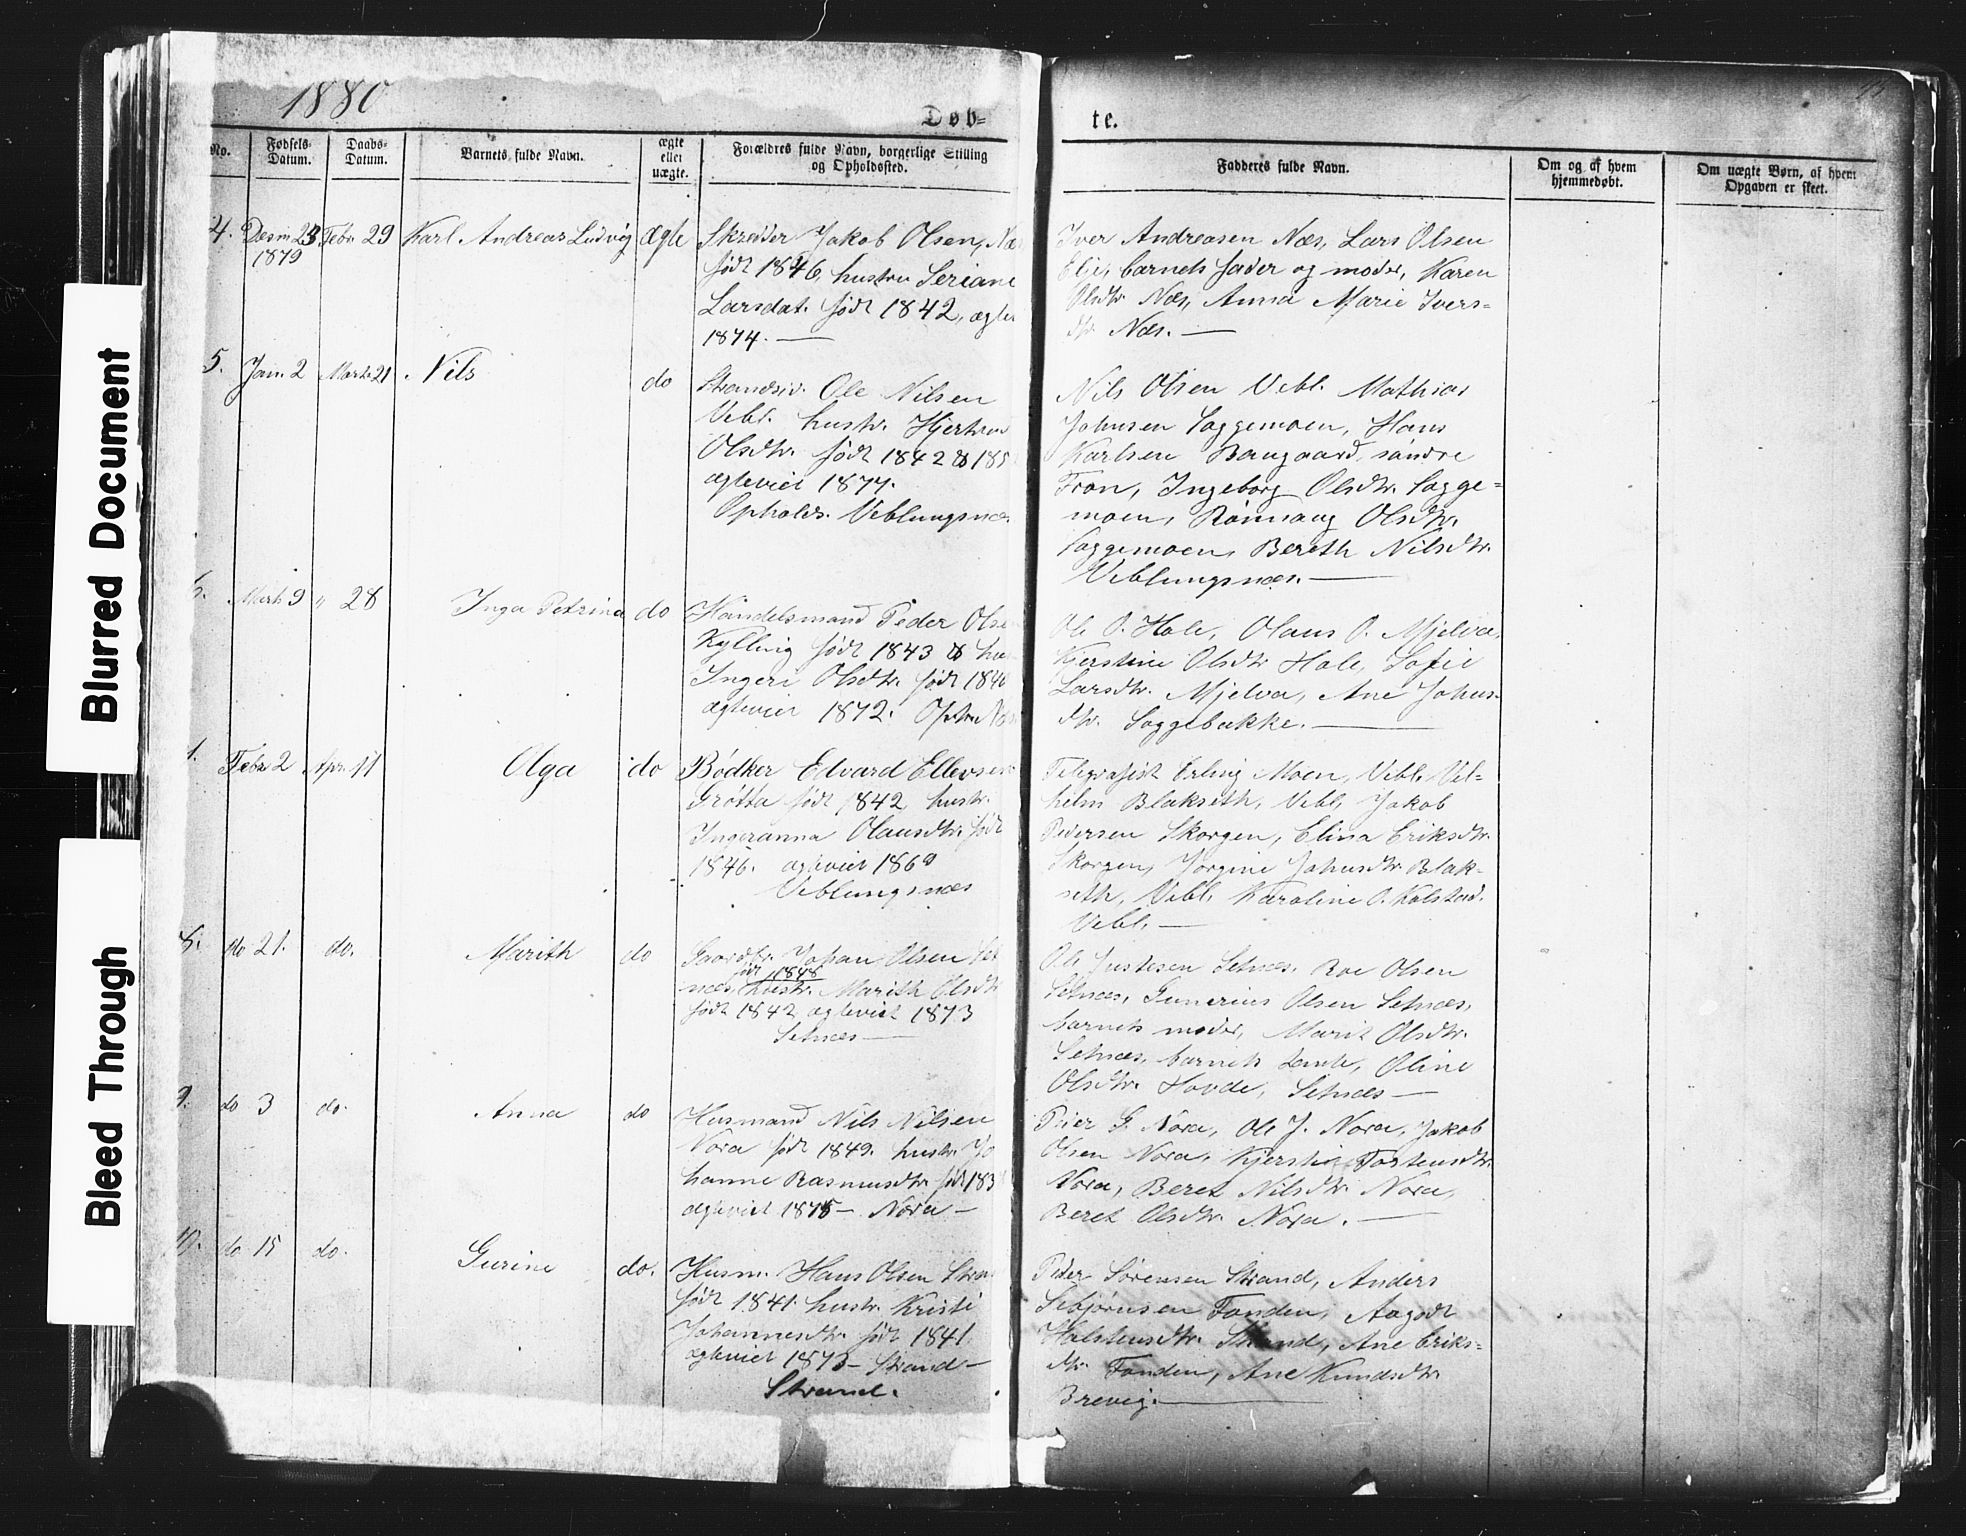 Blurred Document
Bleed Through
1880
Døb=
te.
No.
Fødsels-
Datum.
Daabs-
Datum.
Barnets fulde Navn.
ægte
eller
uægte.
Forældres fulde Navn, borgerlige Stilling
og Opholdssted.
Faddernes fulde Navn.
Om og af hvem
hjemmedøbt.
Om uægte Børn, af hvem
Opgaven er skeet.
4. Desm 23 Febr 29 Karl Andreas Ludvig ægte
1879
Skræder Jakob Olsen,
født 1846, hustru Seriane
Larsdat. født 1842,
1874. —
Iver Andreasen Næs, Lars Olsen
barnets fader og moder, Karen
Olsdtr Næs, Anna Marie Ivers-
dtr. Næs. —
5. Jan. 2 Marts 21 Nils do
Strands. Ole Nilsen
Vebl. hustr.
Olsdtr. født 1842 &
ægteviet 1877.
Opholds. Veblungsnæs
Nils Olsen Vebl. Mathias
Johnsen Soggemoen, Hans
Karlsen Baugaard, søndre
Fron, Ingeborg Olsdtr. Sogge-
moen, Rønnaug Olsdtr.
Soggemoen, Bereth Nilsdtr.
Veblungsnæs. —
6. Marts 9 " 28 Inga Petrina do
Handelsmand Peder
Kylling født 1843 &
Ingeri Olsdtr. født
ægteviet 1872.
Ole O. Hole, Olaus O. Mjelva,
Kjerstine Olsdtr Hole, Sofie
Larsdtr. Mjelva, Ane Johns-
dtr. Soggebakke. —
Febr 2 Apr. 11 Olga do
Bødker Edvard Ellevsen
Grøtta født 1842 hustr.
Ingeranna Olausdtr. født
1846. ægteviet 1869
Veblungsnæs
Telegrafist Erling Moen, Vebl. Vel-
helm Blakseth, Vebl. Jakob
Pedersen Skorgen, Elina Eriksdtr.
Skorgen, Jørgine Johnsdtr Blak-
seth, Vebl. Karoline O. Kolstad.
Vebl. —
do 21. do. Marith do
Gaardbr. Johan Olsen Set
født 1848
næs, hustr. Marith Olsdtr
født 1842 ægteviet 1873
Setnæs —
Ole Justesen Setnæs, Roe Olsen
Setnæs, Gunerius Olsen Setnæs,
barnets moder, Marit Olsdtr.
Setnæs, barnets tante, Oline
Olsdtr. Hovde, Setnæs —
9. do 3 do. Anna do
Husmand Nils Nilsen
Nora født 1849. hustr. Jo
hanne Rasmusdtr. født
ægteviet 1875 — Nora —
Peter G. Nora, Ole J. Nora, Jakob
Olsen Nora, Kjersti Torstensdtr.
Nora, Beret Nilsdtr. Nora,
Beret Olsdtr. Nora. —
10. do 15 do. Gurine do.
Husm. Hans Olsen
født 1841. hustr. Kristi
Johannesdtr. født 1841.
ægteviet 1873 — Strand —
Strand.
Peder Sørensen Strand, Anders
Sebjørnsen Fonden, Aagodt
Halstensdtr. Strand, Ane Eriks-
dtr. Fonden, Ane Knudsdtr.
Brevig. —